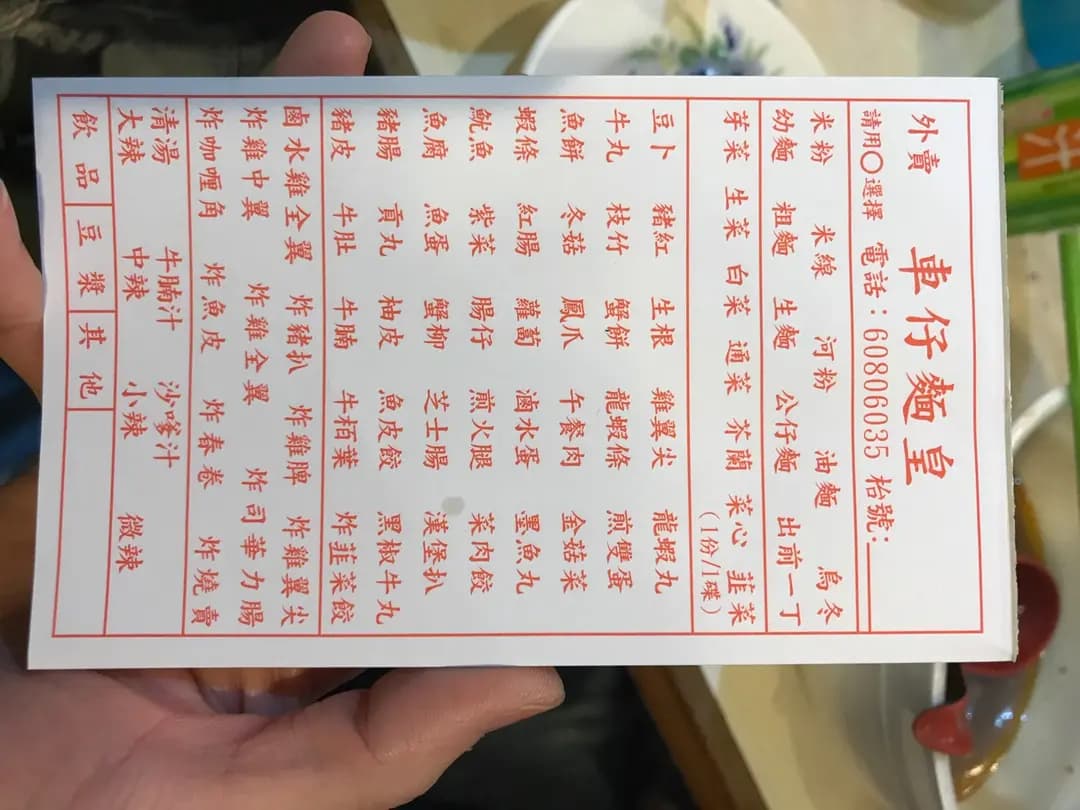 外賣 車仔麵皇
請用○選擇 電話：60806035 枱號:
米粉 米線 河粉 油麵 烏冬
幼麵 粗麵 生麵 公仔麵 出前一丁
芽菜 生菜 白菜 通菜 芥蘭 菜心 韮菜
(1份/1碟)
豆卜 豬紅 生根 雞翼尖 龍蝦丸
牛丸 枝仔 蟹餅 龍蝦條 煎雙蛋
魚餅 冬菇 鳳爪 午餐肉 金菇菜
蝦條 紅腸 蘿蔔 滷水蛋 墨魚丸
魷魚 紫菜 腸仔 煎火腿 菜肉餃
魚腐 魚蛋 蟹柳 芝士腸 漢堡扒
豬腸 貢丸 柚皮 魚皮餃 黑椒牛丸
豬皮 牛肚 牛腩 牛栢葉 炸韮菜餃
鹵水雞全翼 炸豬扒 炸雞脾 炸雞翼尖
炸雞中翼 炸雞全翼 炸司華力腸
炸咖喱角 炸魚皮 炸春卷 炸燒賣
清湯 牛腩汁 沙嗲汁
大辣 中辣 小辣 微辣
飲品 豆漿 其他
汁